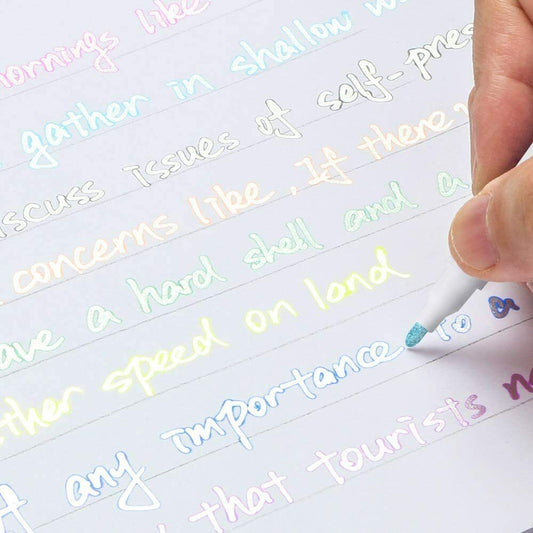 mornings like
gather in shallow w
iscuss issues of self-pres
concerns like, If there
ave a hard shell and a
ther speed on land
t any importance to a
that tourists n